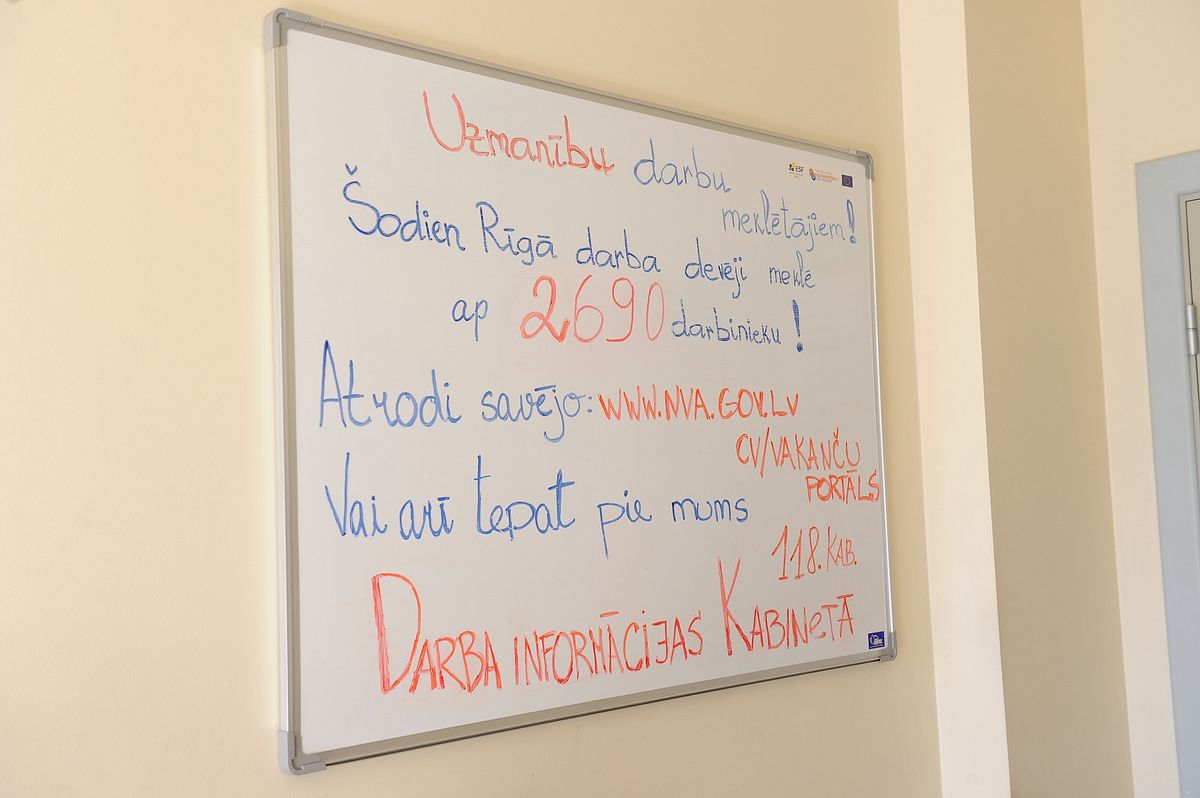 Uzmanību darbu
meklētājiem!
ESF
Šodien Rīgā darba devēji meklē
ap 2690 darbinieku!
Atrodi savējo: WWW.NVA.GOV.LV
CV/VAKANČU
PORTĀLS
Vai arī tepat pie mums
118. KAB.
DARBA INFORMĀCIJAS KABINETĀ